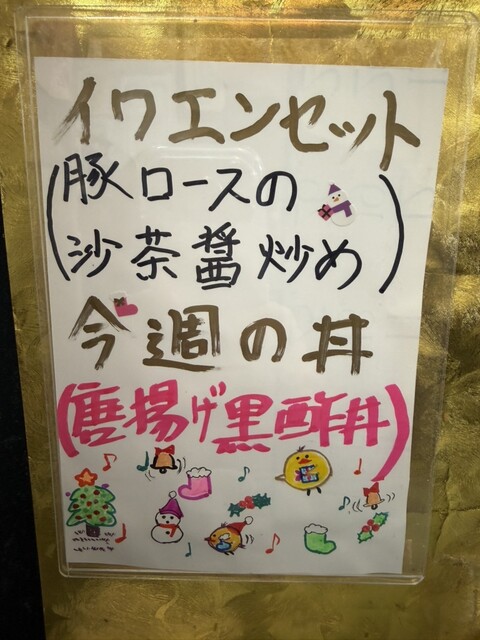 イワエンセット
(豚ロースの
沙茶醤炒め)
今週の丼
(唐揚げ黒酢丼)